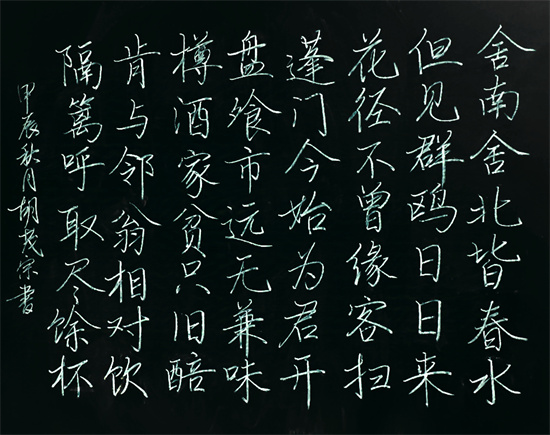 舍南舍北皆春水
但见群鸥日日来
花径不曾缘客扫
蓬门今始为君开
盘飧市远无兼味
樽酒家贫只旧醅
肯与邻翁相对饮
隔篱呼取尽馀杯
甲辰秋月胡宗書